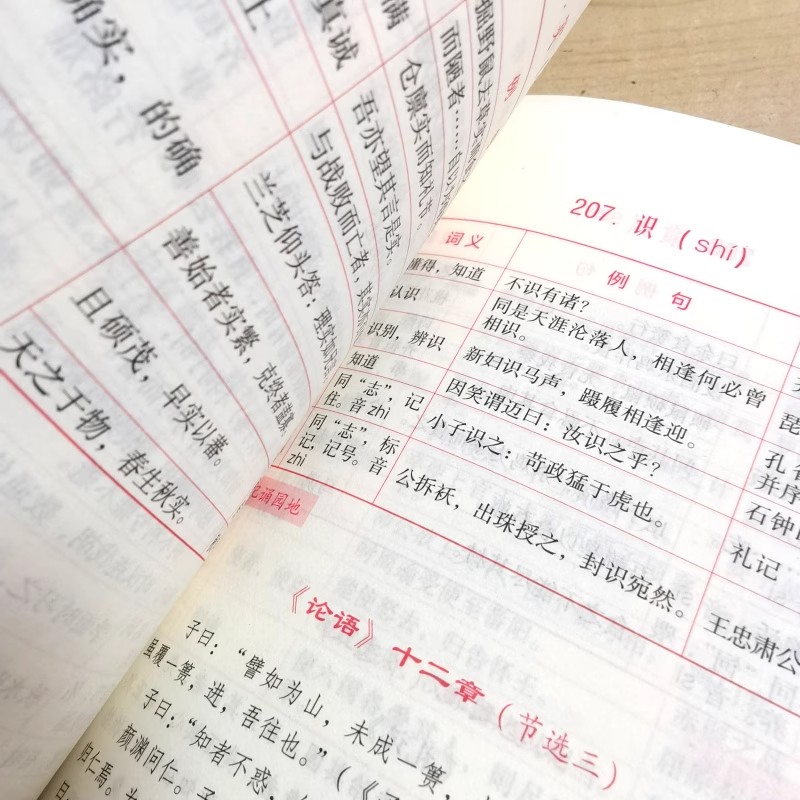 确实，的确
真诚
掘野鼠去草实
而陋者……自以
仓廪实而知礼节。
吾亦望其言是实。
与战败而亡者，其实
兰芝仰头答：理实
善始者实繁，克终者
且硕茂，早实以蕃。
天之于物，春生秋实。
207. 识（shí）
词义
例 句
懂得，知道
不识有诸？
认识
同是天涯沦落人，相逢何必曾
相识。
识别，辨识
新妇识马声，蹑履相逢迎。
知道
因笑谓迈曰：汝识之乎？
同“志”，记
住。音zhì
小子识之：苛政猛于虎也。
同“志”，标
记，记号。音
zhì
公拆袄，出珠授之，封识宛然。
昆
孔
并序
石钟
礼记
王忠肃公
诵园地
《论语》十二章（节选三）
子曰：“譬如为山，未成一篑，
虽覆一篑，进，吾往也。”（《子
子曰：“知者不惑，
颜渊问仁。子
归仁焉。为